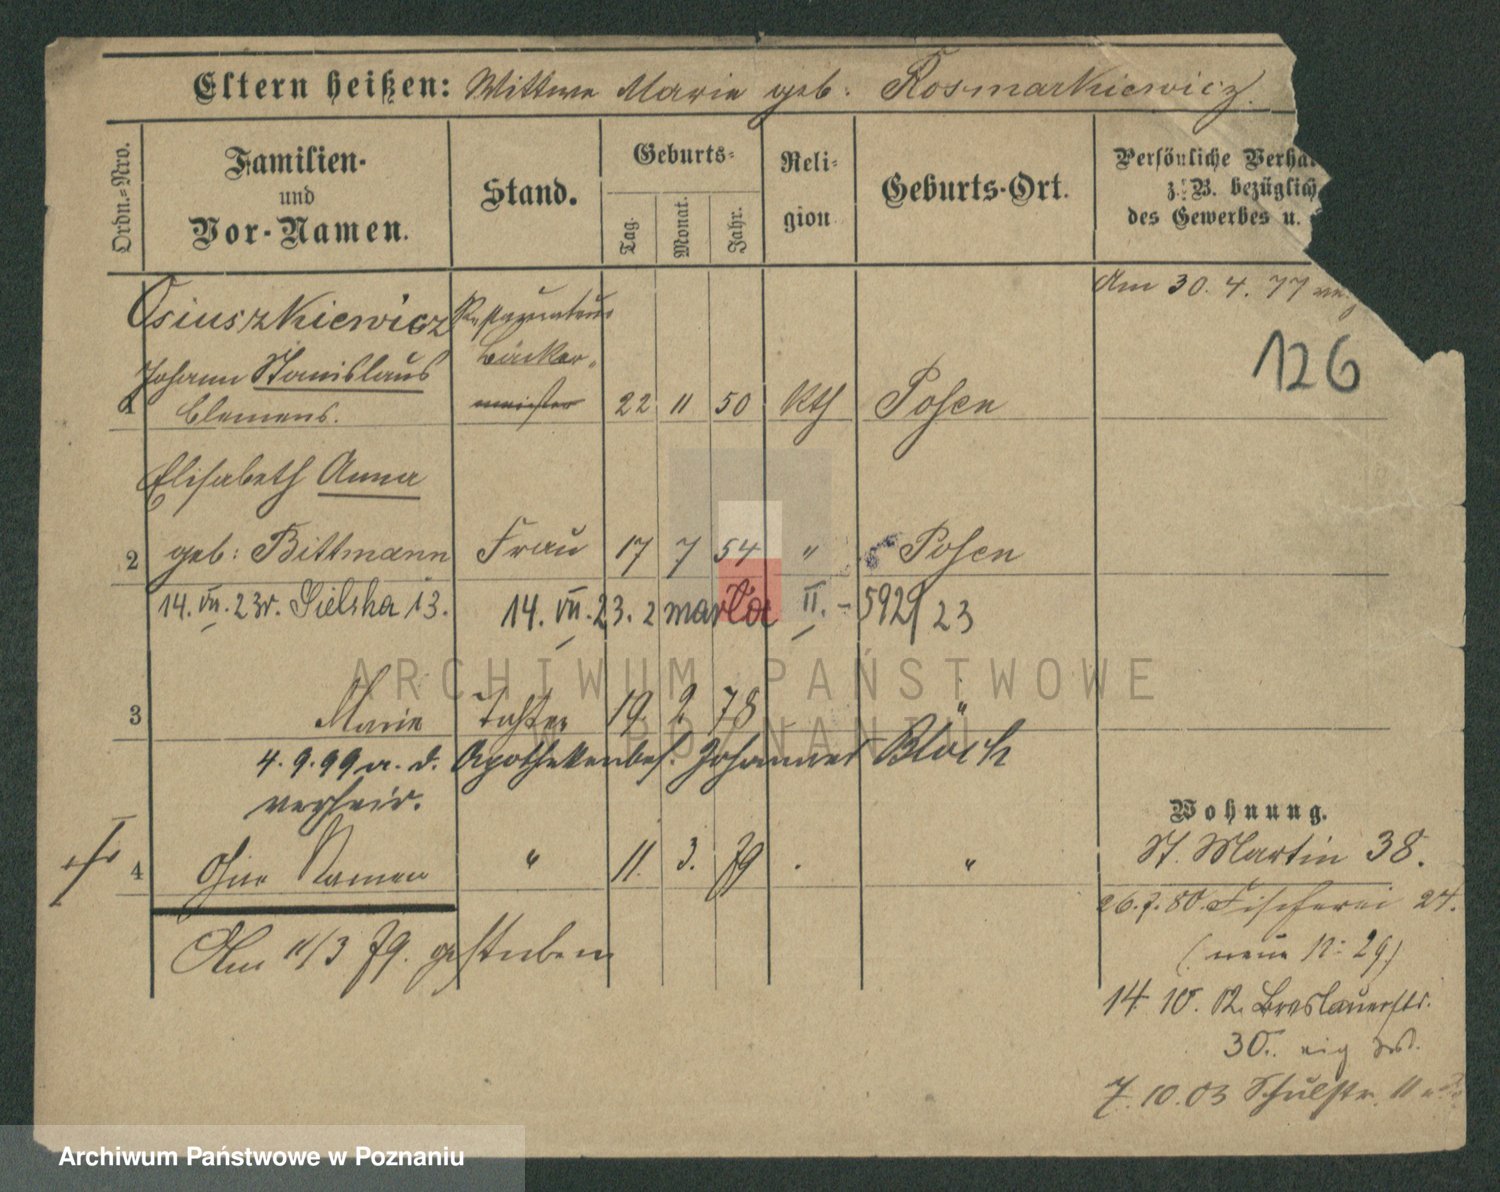 Eltern heißen: Wittwe Marie geb. Rosmarkiewicz.
Ordn.-Nro.
Familien-
und
Vor-Namen.
Stand.
Geburts-
Tag.
Monat.
Jahr.
Reli-
gion
Geburts-Ort.
Persönliche Verhä
z. B. bezüglich
des Gewerbes u.
Am 30. 4. 77
126
Osiuszkiewicz
Johann Stanislaus
Clemens.
Bäcker-
meister
1
22 11 50 Kth Posen
Elisabeth Anna
2 geb: Bittmann Frau 17 7 54 " Posen
14. VII. 23r. Sielska 13. 14. VII. 23. 2 II. - 5929/23
3 Marie Tochter 19. 2. 78 "
4. 9. 99 a. d. Apothekenbes. Johannes Bloch
verheir.
4 Ohne Namen " 11. 3. 79 . "
Am 11/3 79. gestorben
Wohnung.
St. Martin 38.
26.7.80. Fischerei 24.
(neue N: 29)
14 10. 02. Breslauerstr.
30.
7.10.03 Schulstr. 11
ARCHIWUM PAŃSTWOWE
W POZNANIU
Archiwum Państwowe w Poznaniu